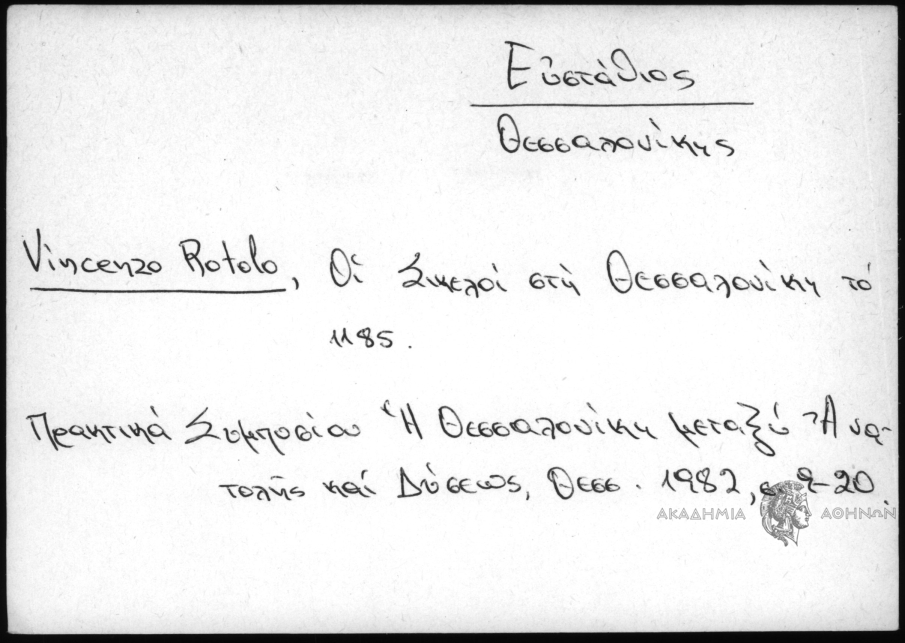 Εὐστάθιος
Θεσσαλονίκης
Vincenzo Rotolo, Οἱ Σικελοί στή Θεσσαλονίκη τό
1185.
Πρακτικά Συμποσίου Ἡ Θεσσαλονίκη μεταξύ Ἀνα-
τολῆς καί Δύσεως, Θεσσ. 1982, σ 9-20.
ΑΚΑΔΗΜΙΑ ΑΘΗΝΩΝ